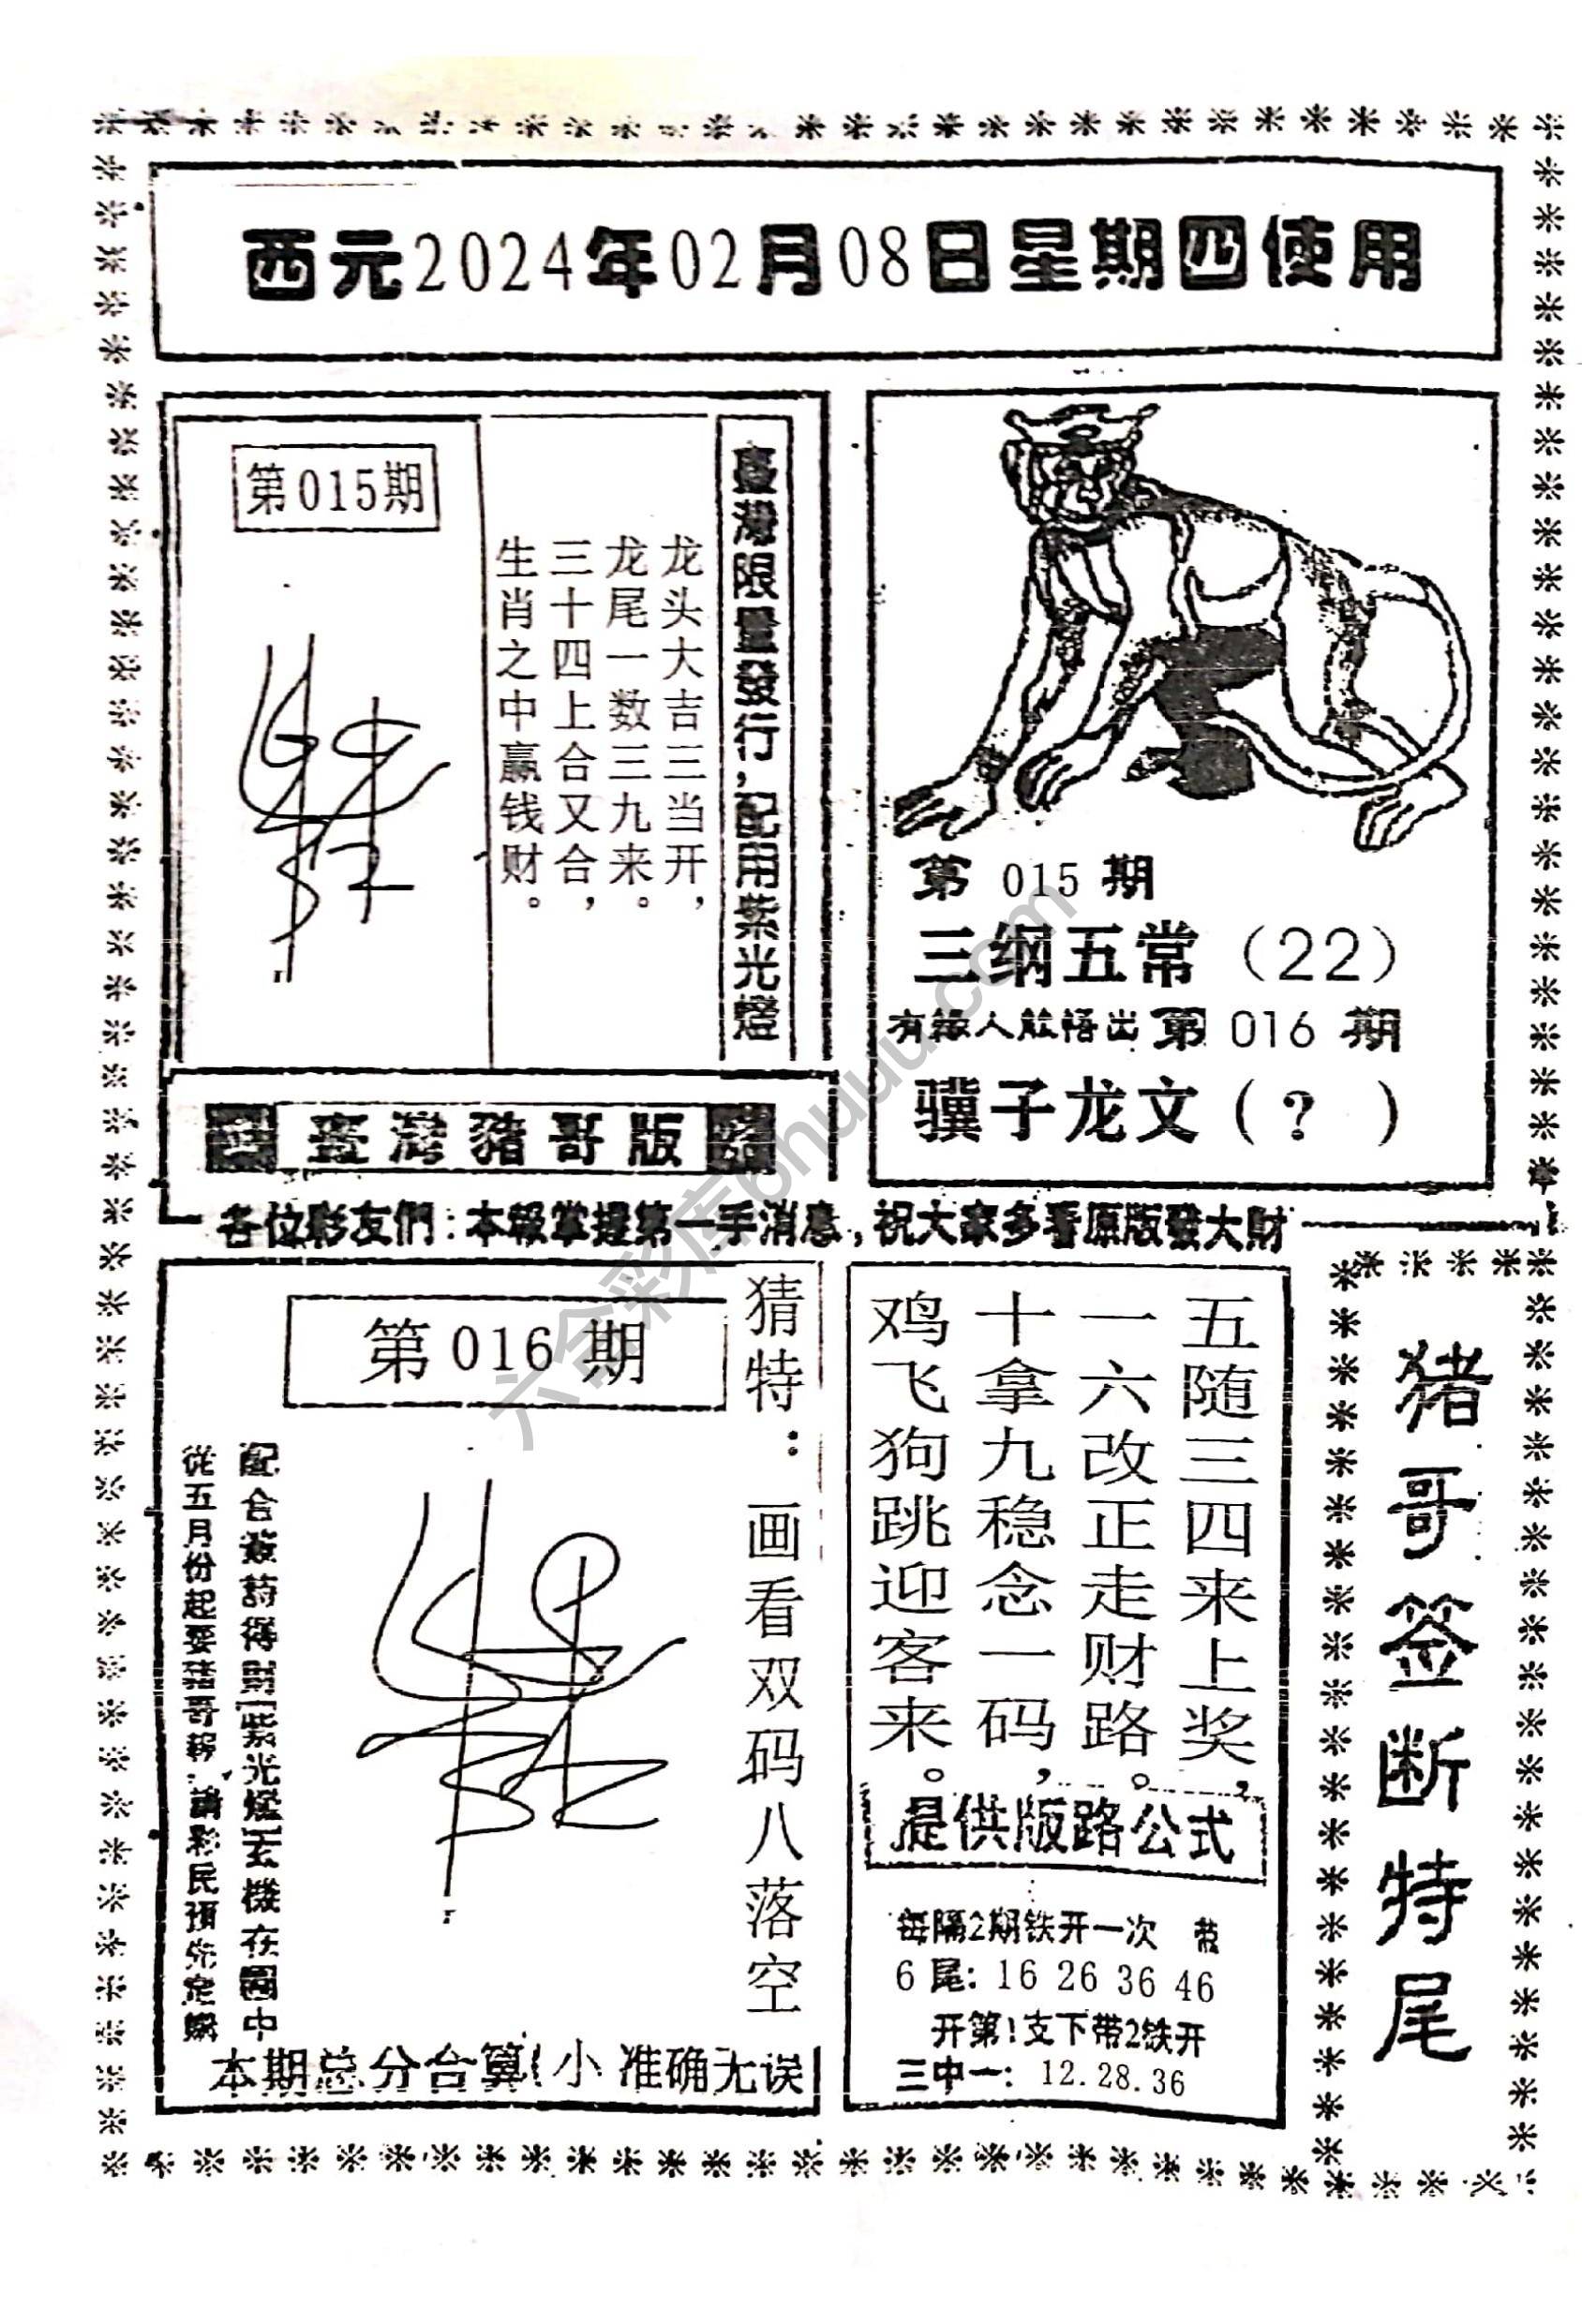 西元2024年02月08日星期四使用
第015期
臺灣限量發行，配用紫光燈
龙头大吉三当开，
龙尾一数三九来。
三十四上合又合，
生肖之中赢钱财。
第 015 期
三纲五常（22）
有緣人能悟出 第 016 期
骥子龙文（？）
臺灣豬哥版
各位彩友們：本報掌握第一手消息，祝大家多看原版發大財
第 016 期
猜特：画看双码八落空
配合簽詩得財紫光燈玄機在圖中
從五月份起要豬哥報，請彩民預先定購
本期总分合算（小 准确无误
五随三四来上奖，
一六改正走财路。
十拿九稳念一码，
鸡飞狗跳迎客来。
提供版路公式
每隔2期铁开一次 带
6 尾：16 26 36 46
开第1支下带2铁开
三中一：12.28.36
猪哥签断特尾
六合彩库bhuuu.com